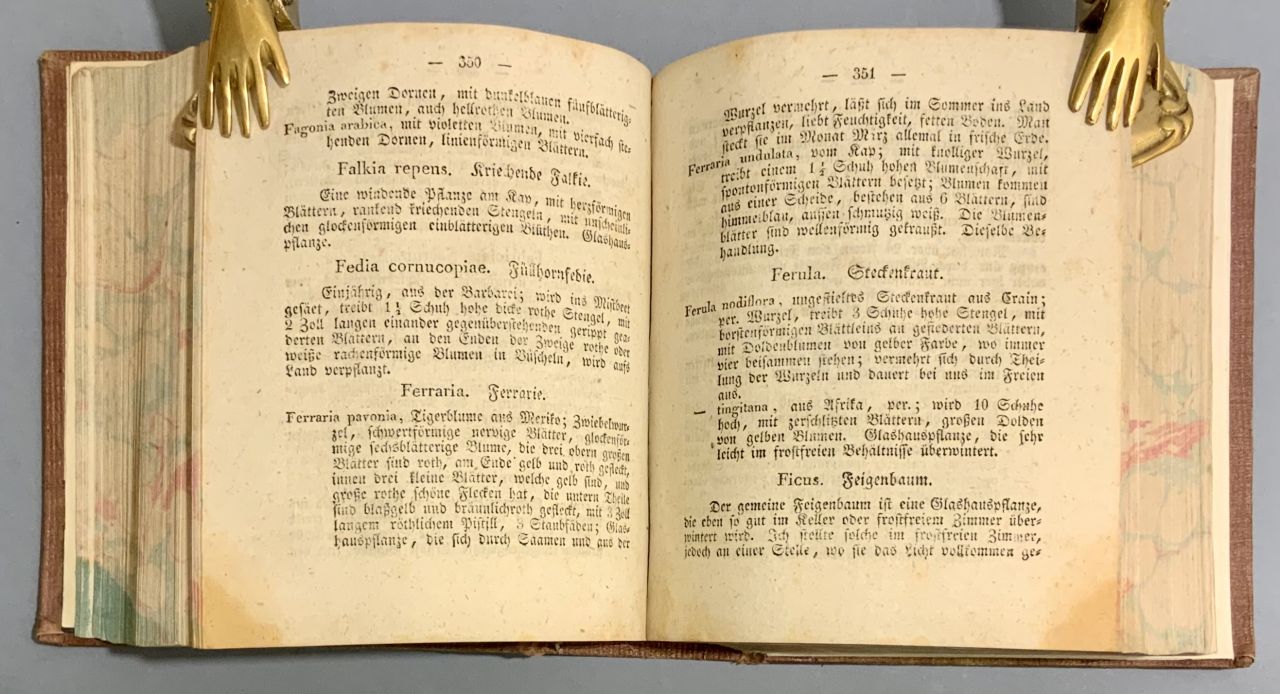 — 350 —
Zweigen Dornen, mit dunkelblauen fünfblätterig-
ten Blumen, auch hellrothen Blumen.
Fagonia arabica, mit violetten Blumen, mit vierfach ste-
henden Dornen, linienförmigen Blättern.
Falkia repens. Kriechende Falkie.
Eine windende Pflanze am Kap, mit herzförmigen
Blättern, rankend kriechenden Stengeln, mit unscheinli-
chen glockenförmigen einblätterigen Blüthen. Glashaus-
pflanze.
Fedia cornucopiae. Füllhornfedie.
Einjährig, aus der Barbarei; wird ins Mistbeet
gesäet, treibt 1½ Schuh hohe dicke rothe Stengel, mit
2 Zoll langen einander gegenüberstehenden gerippt gea-
derten Blättern, an den Enden der Zweige rothe oder
weiße rachenförmige Blumen in Büscheln, wird aufs
Land verpflanzt.
Ferraria. Ferrarie.
Ferraria pavonia, Tigerblume aus Mexiko; Zwiebelwur-
zel, schwertförmige nervige Blätter, glockenför-
mige sechsblätterige Blume, die drei obern großen
Blätter sind roth, am Ende gelb und roth gefleckt,
innen drei kleine Blätter, welche gelb sind, und
große rothe schöne Flecken hat, die untern Theile
sind blaßgelb und bräunlichroth gefleckt, mit 3 Zoll
langem röthlichem Pistill, 3 Staubfäden; Glas-
hauspflanze, die sich durch Saamen und aus der
— 351 —
Wurzel vermehrt, läßt sich im Sommer ins Land
verpflanzen, liebt Feuchtigkeit, fetten Boden. Man
steckt sie im Monat März allemal in frische Erde.
Ferraria undulata, vom Kap; mit knolliger Wurzel,
treibt einem 1½ Schuh hohen Blumenschaft, mit
spontonförmigen Blättern besetzt; Blumen kommen
aus einer Scheide, bestehen aus 6 Blättern, sind
himmelblau, aussen schmutzig weiß. Die Blumen-
blätter sind wellenförmig gekraußt. Dieselbe Be-
handlung.
Ferula. Steckenkraut.
Ferula nodiflora, ungestieltes Steckenkraut aus Crain;
per. Wurzel, treibt 3 Schuhe hohe Stengel, mit
borstenförmigen Blättleins an gefiederten Blättern,
mit Doldenblumen von gelber Farbe, wo immer
vier beisammen stehen; vermehrt sich durch Thei-
lung der Wurzeln und dauert bei uns im Freien
aus.
— tingitana, aus Afrika, per.; wird 10 Schuhe
hoch, mit zerschlitzten Blättern, großen Dolden
von gelben Blumen. Glashauspflanze, die sehr
leicht im frostfreien Behältnisse überwintert.
Ficus. Feigenbaum.
Der gemeine Feigenbaum ist eine Glashauspflanze,
die eben so gut im Keller oder frostfreiem Zimmer über-
wintert wird. Ich stellte solche im frostfreien Zimmer,
jedoch an einer Stelle, wo sie das Licht vollkommen ge-